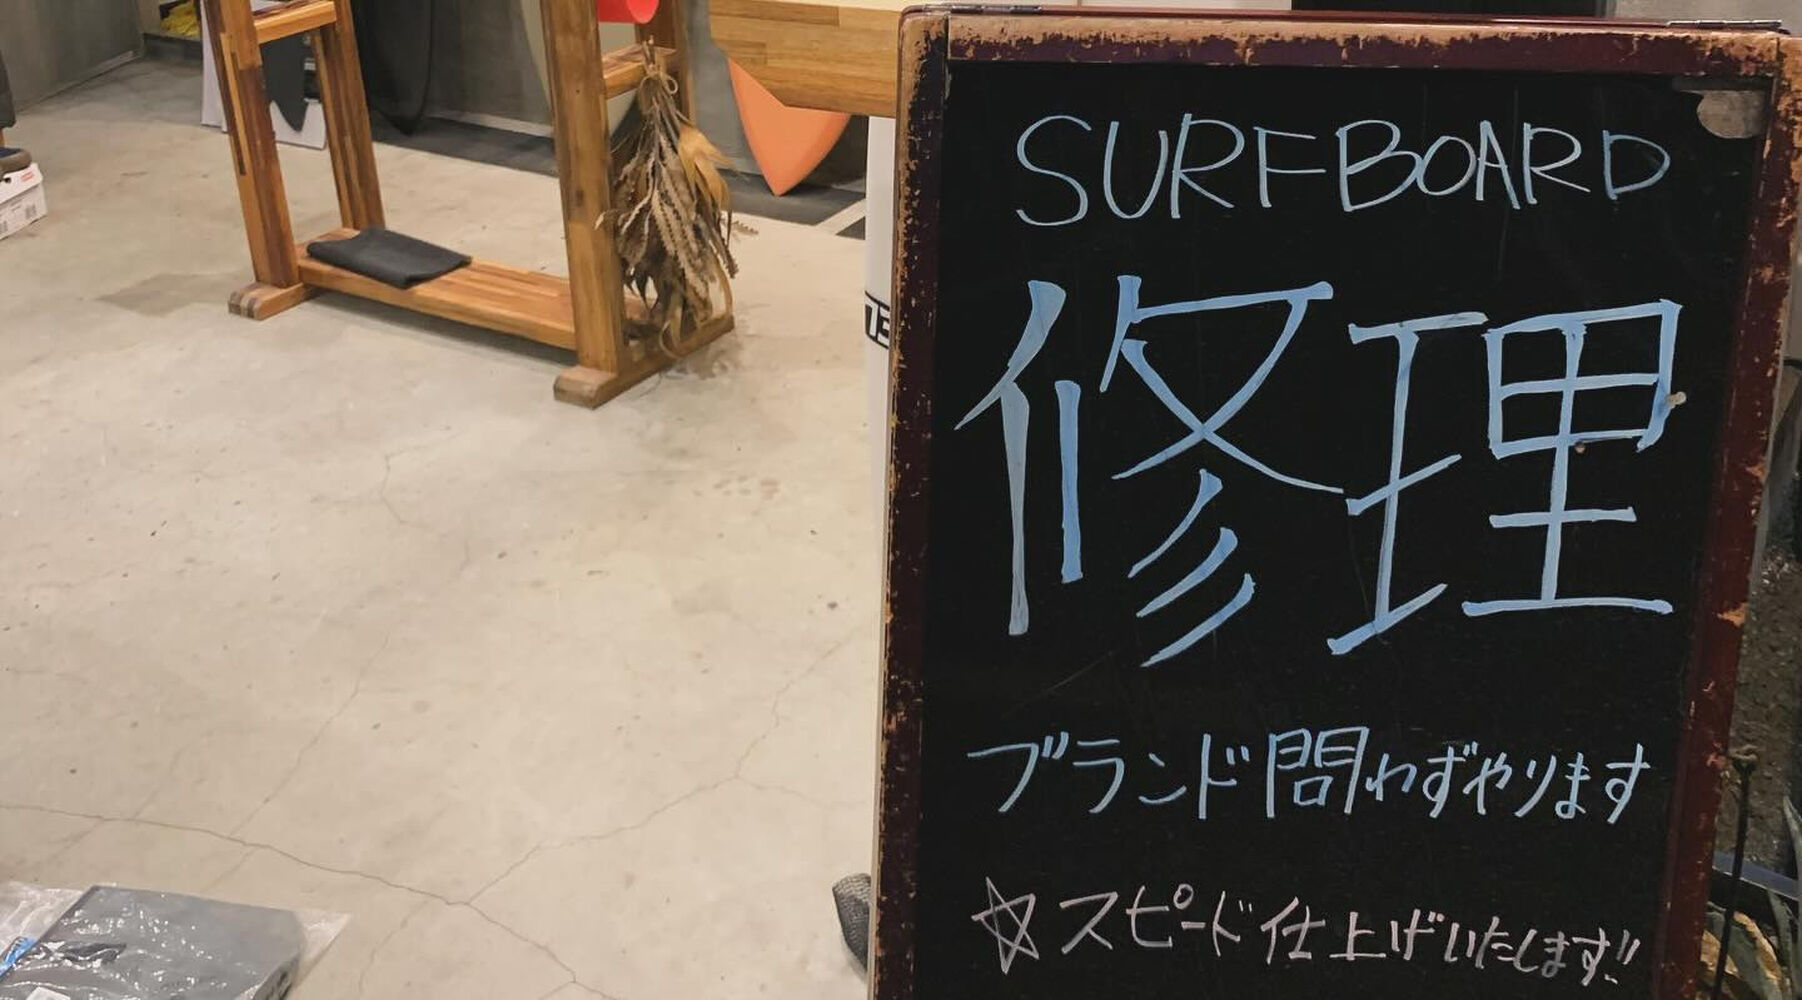 SURFBOARD
修理
ブランド問わずやります
☆スピード仕上げいたします!!